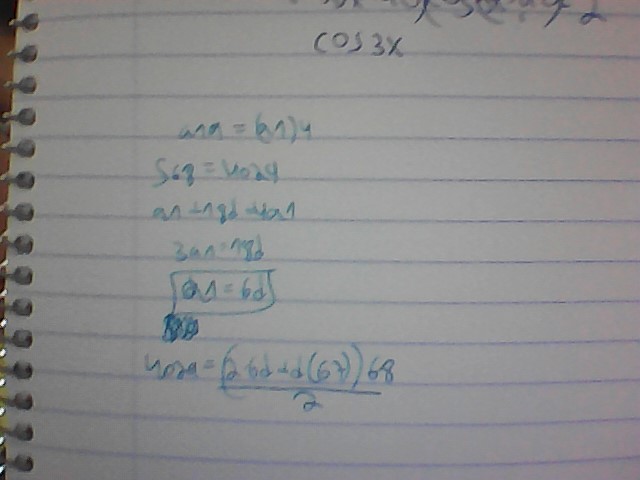 cos 3x
a19 = (a1)4
S68 = 4029
a1 + 18d = 4a1
3a1 = 18d
a1 = 6d
4029 = (2 6d + d(67)) 68
2